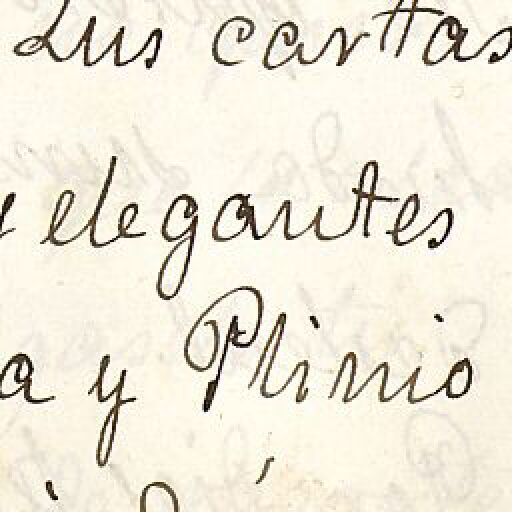 Sus cartas
elegantes
a y Plinio